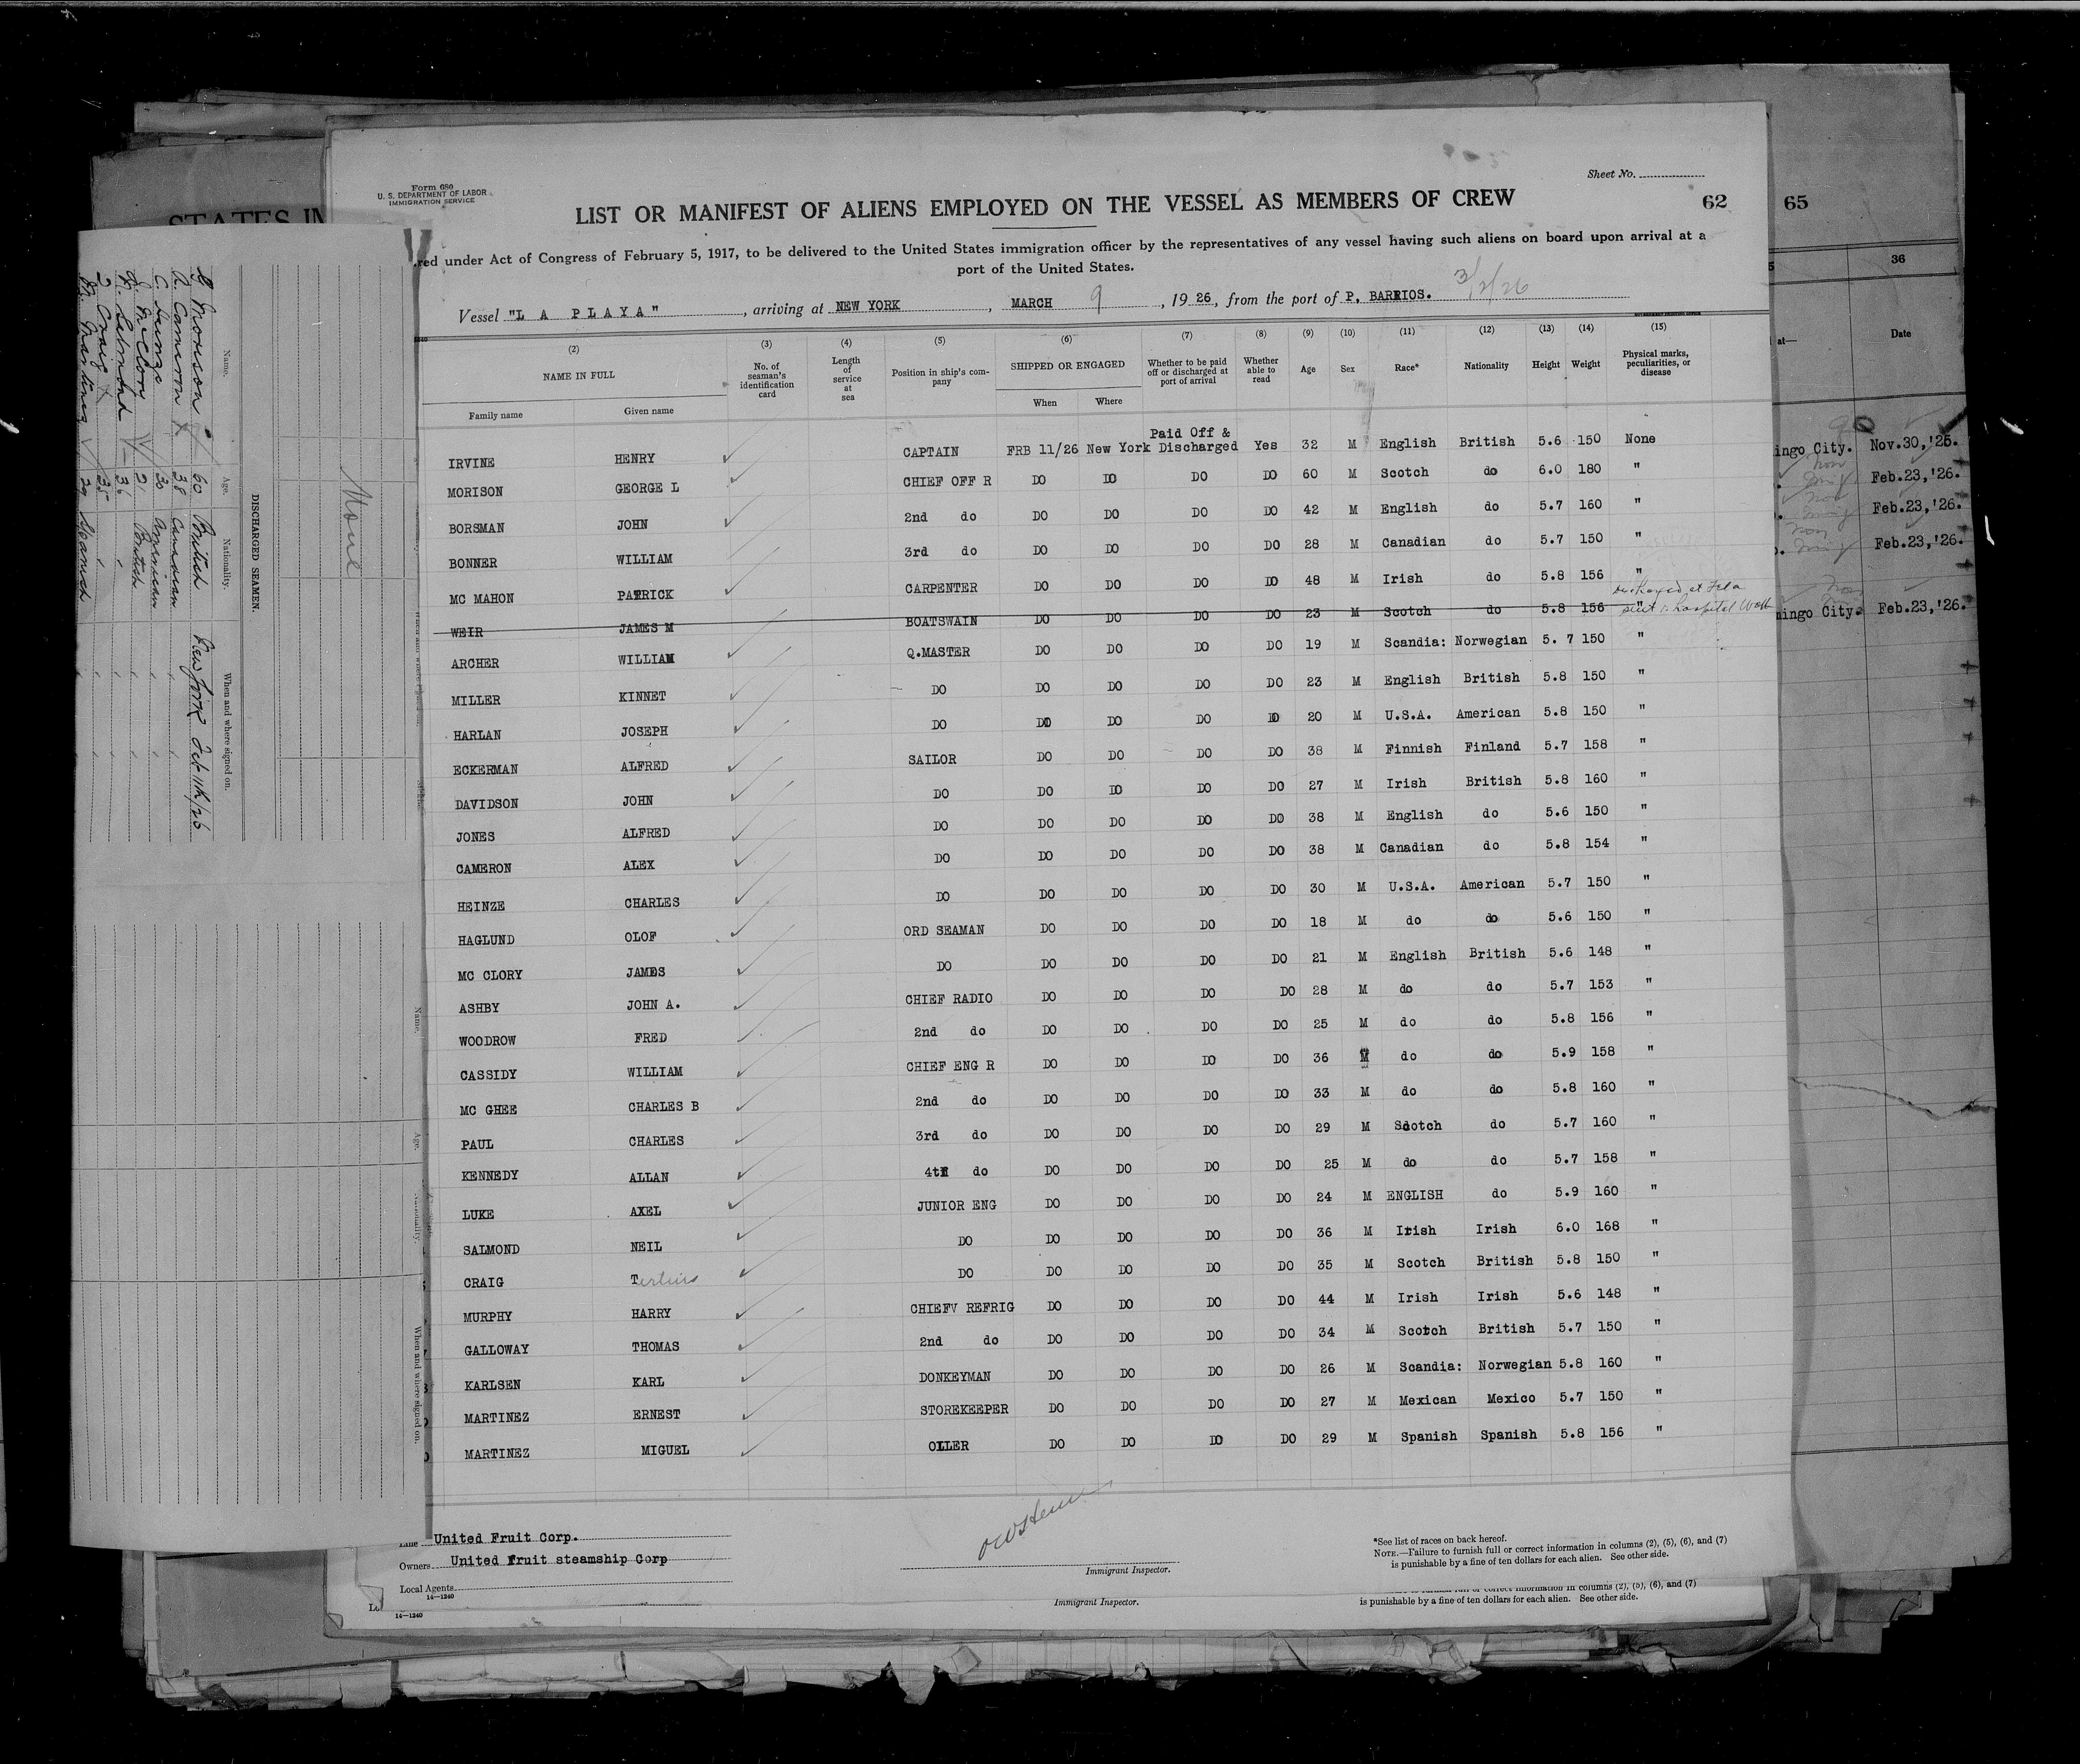 Form 680
U. S. DEPARTMENT OF LABOR
IMMIGRATION SERVICE
Sheet No.
STATES IN
LIST OR MANIFEST OF ALIENS EMPLOYED ON THE VESSEL AS MEMBERS OF CREW
62
65
red under Act of Congress of February 5, 1917, to be delivered to the United States immigration officer by the representatives of any vessel having such aliens on board upon arrival at a
port of the United States.
Vessel "L A PLAYA", arriving at NEW YORK, MARCH 9, 1926, from the port of P. BARRIOS. 3/2/26
(2) (3) (4) (5) (6) (7) (8) (9) (10) (11) (12) (13) (14) (15)
NAME IN FULL
Family name Given name
No. of seaman's identification card
Length of service at sea
Position in ship's company
SHIPPED OR ENGAGED
When Where
Whether to be paid off or discharged at port of arrival
Whether able to read
Age Sex Race* Nationality Height Weight
Physical marks, peculiarities, or disease
Paid Off &
IRVINE HENRY CAPTAIN FRB 11/26 New York Discharged Yes 32 M English British 5.6 150 None
MORISON GEORGE L CHIEF OFF R DO DO DO DO 60 M Scotch do 6.0 180 "
BORSMAN JOHN 2nd do DO DO DO DO 42 M English do 5.7 160 "
BONNER WILLIAM 3rd do DO DO DO DO 28 M Canadian do 5.7 150 "
MC MAHON PATRICK CARPENTER DO DO DO DO 48 M Irish do 5.8 156 "
WEIR JAMES M BOATSWAIN DO DO DO DO 23 M Scotch do 5.8 156 " discharged at Tela
sent to hospital
ARCHER WILLIAM Q.MASTER DO DO DO DO 19 M Scandia: Norwegian 5. 7 150 "
MILLER KINNET DO DO DO DO DO 23 M English British 5.8 150 "
HARLAN JOSEPH DO DO DO DO DO 20 M U.S.A. American 5.8 150 "
ECKERMAN ALFRED SAILOR DO DO DO DO 38 M Finnish Finland 5.7 158 "
DAVIDSON JOHN DO DO DO DO DO 27 M Irish British 5.8 160 "
JONES ALFRED DO DO DO DO DO 38 M English do 5.6 150 "
CAMERON ALEX DO DO DO DO DO 38 M Canadian do 5.8 154 "
HEINZE CHARLES DO DO DO DO DO 30 M U.S.A. American 5.7 150 "
HAGLUND OLOF ORD SEAMAN DO DO DO DO 18 M do do 5.6 150 "
MC CLORY JAMES DO DO DO DO DO 21 M English British 5.6 148 "
ASHBY JOHN A. CHIEF RADIO DO DO DO DO 28 M do do 5.7 153 "
WOODROW FRED 2nd do DO DO DO DO 25 M do do 5.8 156 "
CASSIDY WILLIAM CHIEF ENG R DO DO DO DO 36 M do do 5.9 158 "
MC GHEE CHARLES B 2nd do DO DO DO DO 33 M do do 5.8 160 "
PAUL CHARLES 3rd do DO DO DO DO 29 M Scotch do 5.7 160 "
KENNEDY ALLAN 4th do DO DO DO DO 25 M do do 5.7 158 "
LUKE AXEL JUNIOR ENG DO DO DO DO 24 M ENGLISH do 5.9 160 "
SALMOND NEIL DO DO DO DO DO 36 M Irish Irish 6.0 168 "
CRAIG Tertius DO DO DO DO DO 35 M Scotch British 5.8 150 "
MURPHY HARRY CHIEFV REFRIG DO DO DO DO 44 M Irish Irish 5.6 148 "
GALLOWAY THOMAS 2nd do DO DO DO DO 34 M Scotch British 5.7 150 "
KARLSEN KARL DONKEYMAN DO DO DO DO 26 M Scandia: Norwegian 5.8 160 "
MARTINEZ ERNEST STOREKEEPER DO DO DO DO 27 M Mexican Mexico 5.7 150 "
MARTINEZ MIGUEL OLLER DO DO DO DO 29 M Spanish Spanish 5.8 156 "
Line United Fruit Corp.
Owners United Fruit steamship Corp
Local Agents
14—1240
Immigrant Inspector.
*See list of races on back hereof.
NOTE.—Failure to furnish full or correct information in columns (2), (5), (6), and (7)
is punishable by a fine of ten dollars for each alien. See other side.
14—1240
Immigrant Inspector.
correct information in columns (2), (5), (6), and (7)
is punishable by a fine of ten dollars for each alien. See other side.
36
at— Date
ingo City. Nov.30,'25.
Feb.23,'26.
Feb.23,'26.
Feb.23,'26.
mingo City. Feb.23,'26.
DISCHARGED SEAMEN.
Name. Age. Nationality. When and where signed on.
G Morison 60 British New York Feb 11th/26
A Cameron X 38 Canadian "
C Heinze 30 American "
J. McClory 21 British "
N. Salmond 36 "
T Craig 35 "
M. Martinez 29 Spanish "
None
Name.
Age.
Nationality.
When and where signed on.